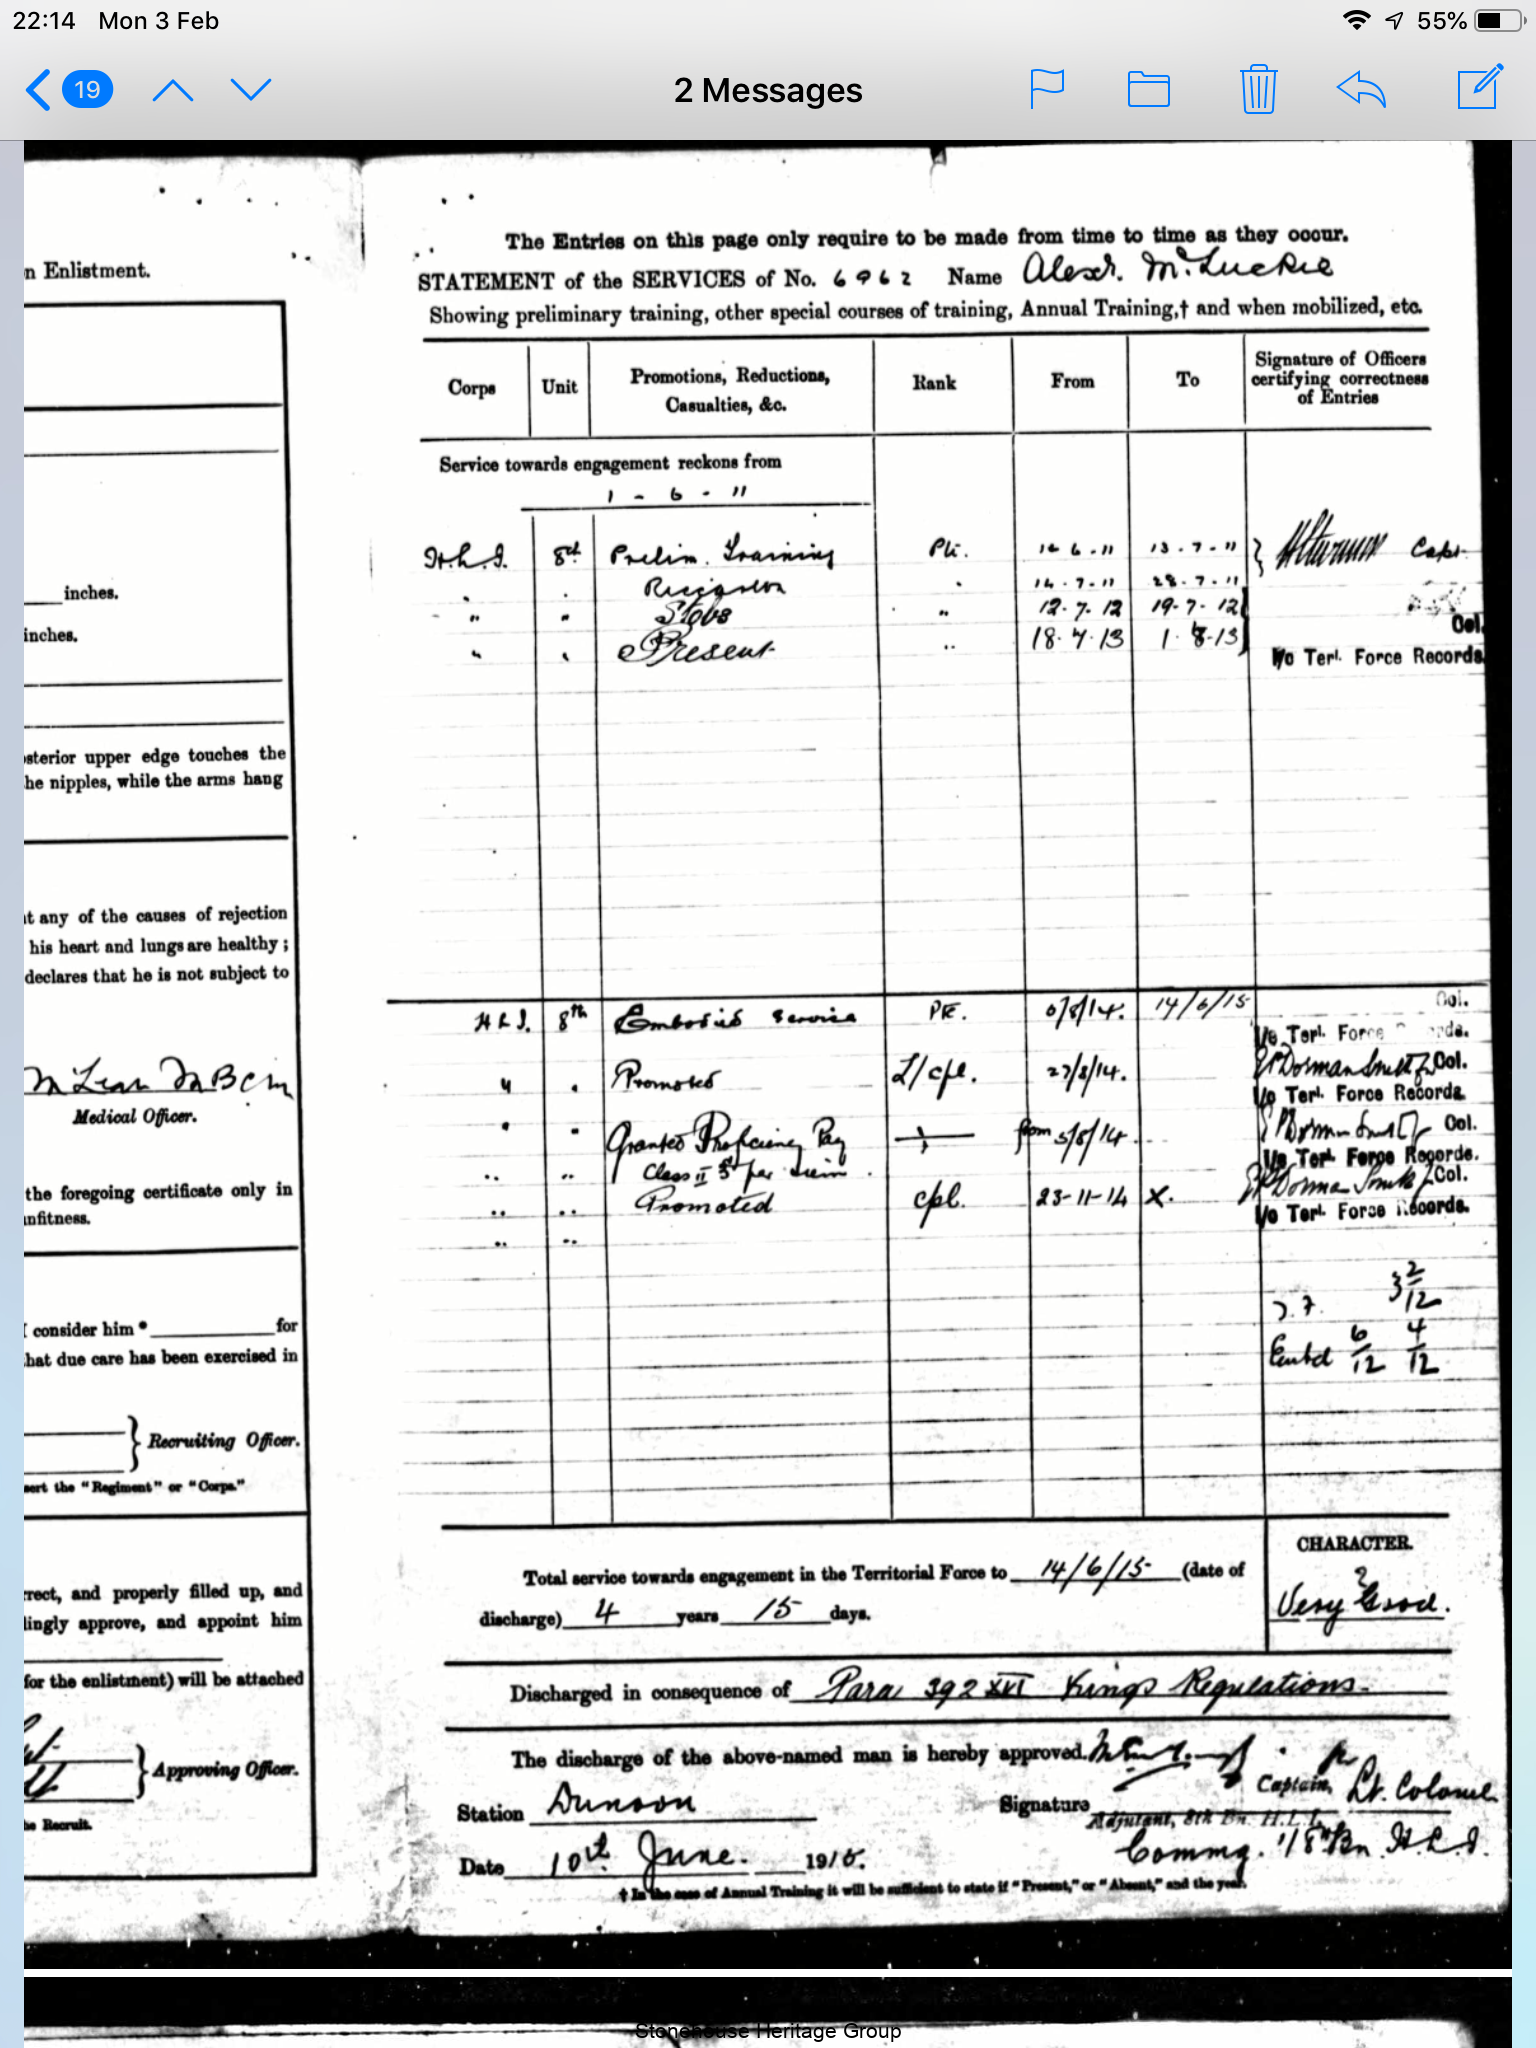 22:14 Mon 3 Feb
55%
19
2 Messages
n Enlistment.
inches.
inches.
sterior upper edge touches the
he nipples, while the arms hang
t any of the causes of rejection
his heart and lungs are healthy ;
declares that he is not subject to
Medical Officer.
the foregoing certificate only in
nfitness.
I consider him * for
hat due care has been exercised in
Recruiting Officer.
sert the "Regiment" or "Corps."
rrect, and properly filled up, and
lingly approve, and appoint him
for the enlistment) will be attached
Approving Officer.
he Recruit.
The Entries on this page only require to be made from time to time as they occur.
STATEMENT of the SERVICES of No. 6962 Name Alexr. McLuckie
Showing preliminary training, other special courses of training, Annual Training,† and when mobilized, etc.
Corps Unit Promotions, Reductions, Casualties, &c. Rank From To Signature of Officers certifying correctness of Entries
Service towards engagement reckons from
1 - 6 - 11
H.L.I. 8th Prelim. Training Pte. 1-6-11 13-7-11 Capt
" " 14-7-11 28-7-11
" " Stobs " 12-7-12 19-7-12
Col.
" " Present " 18-7-13 1-8-13
I/c Terl. Force Records.
H L I. 8th Embodied Service Pte. 5/8/14. 14/6/15 Col.
I/c Terl. Force
" " Promoted L/cpl. 27/8/14. Dorman Smith Col.
I/c Terl. Force Records.
" " Granted Proficiency Pay from 5/8/14. Dorman Smith Col.
I/c Terl. Force Records.
" " Class II
" " Promoted cpl. 23-11-14 X. Dorman Smith Col.
I/c Terl. Force Records.
" "
3 2/12
Embd 6/12 4/12
Total service towards engagement in the Territorial Force to 14/6/15 (date of
discharge) 4 years 15 days.
CHARACTER.
Very Good.
Discharged in consequence of Para 392 XVI Kings Regulations.
The discharge of the above-named man is hereby approved.
Station Dunoon
Signature Captain, Lt. Colonel
Adjutant, 8th Bn. H.L.I.
Commg. 1/8th Bn. H.L.I.
Date 10th June. 1915.
† In the case of Annual Training it will be sufficient to state if "Present," or "Absent," and the year.
Stonehouse Heritage Group